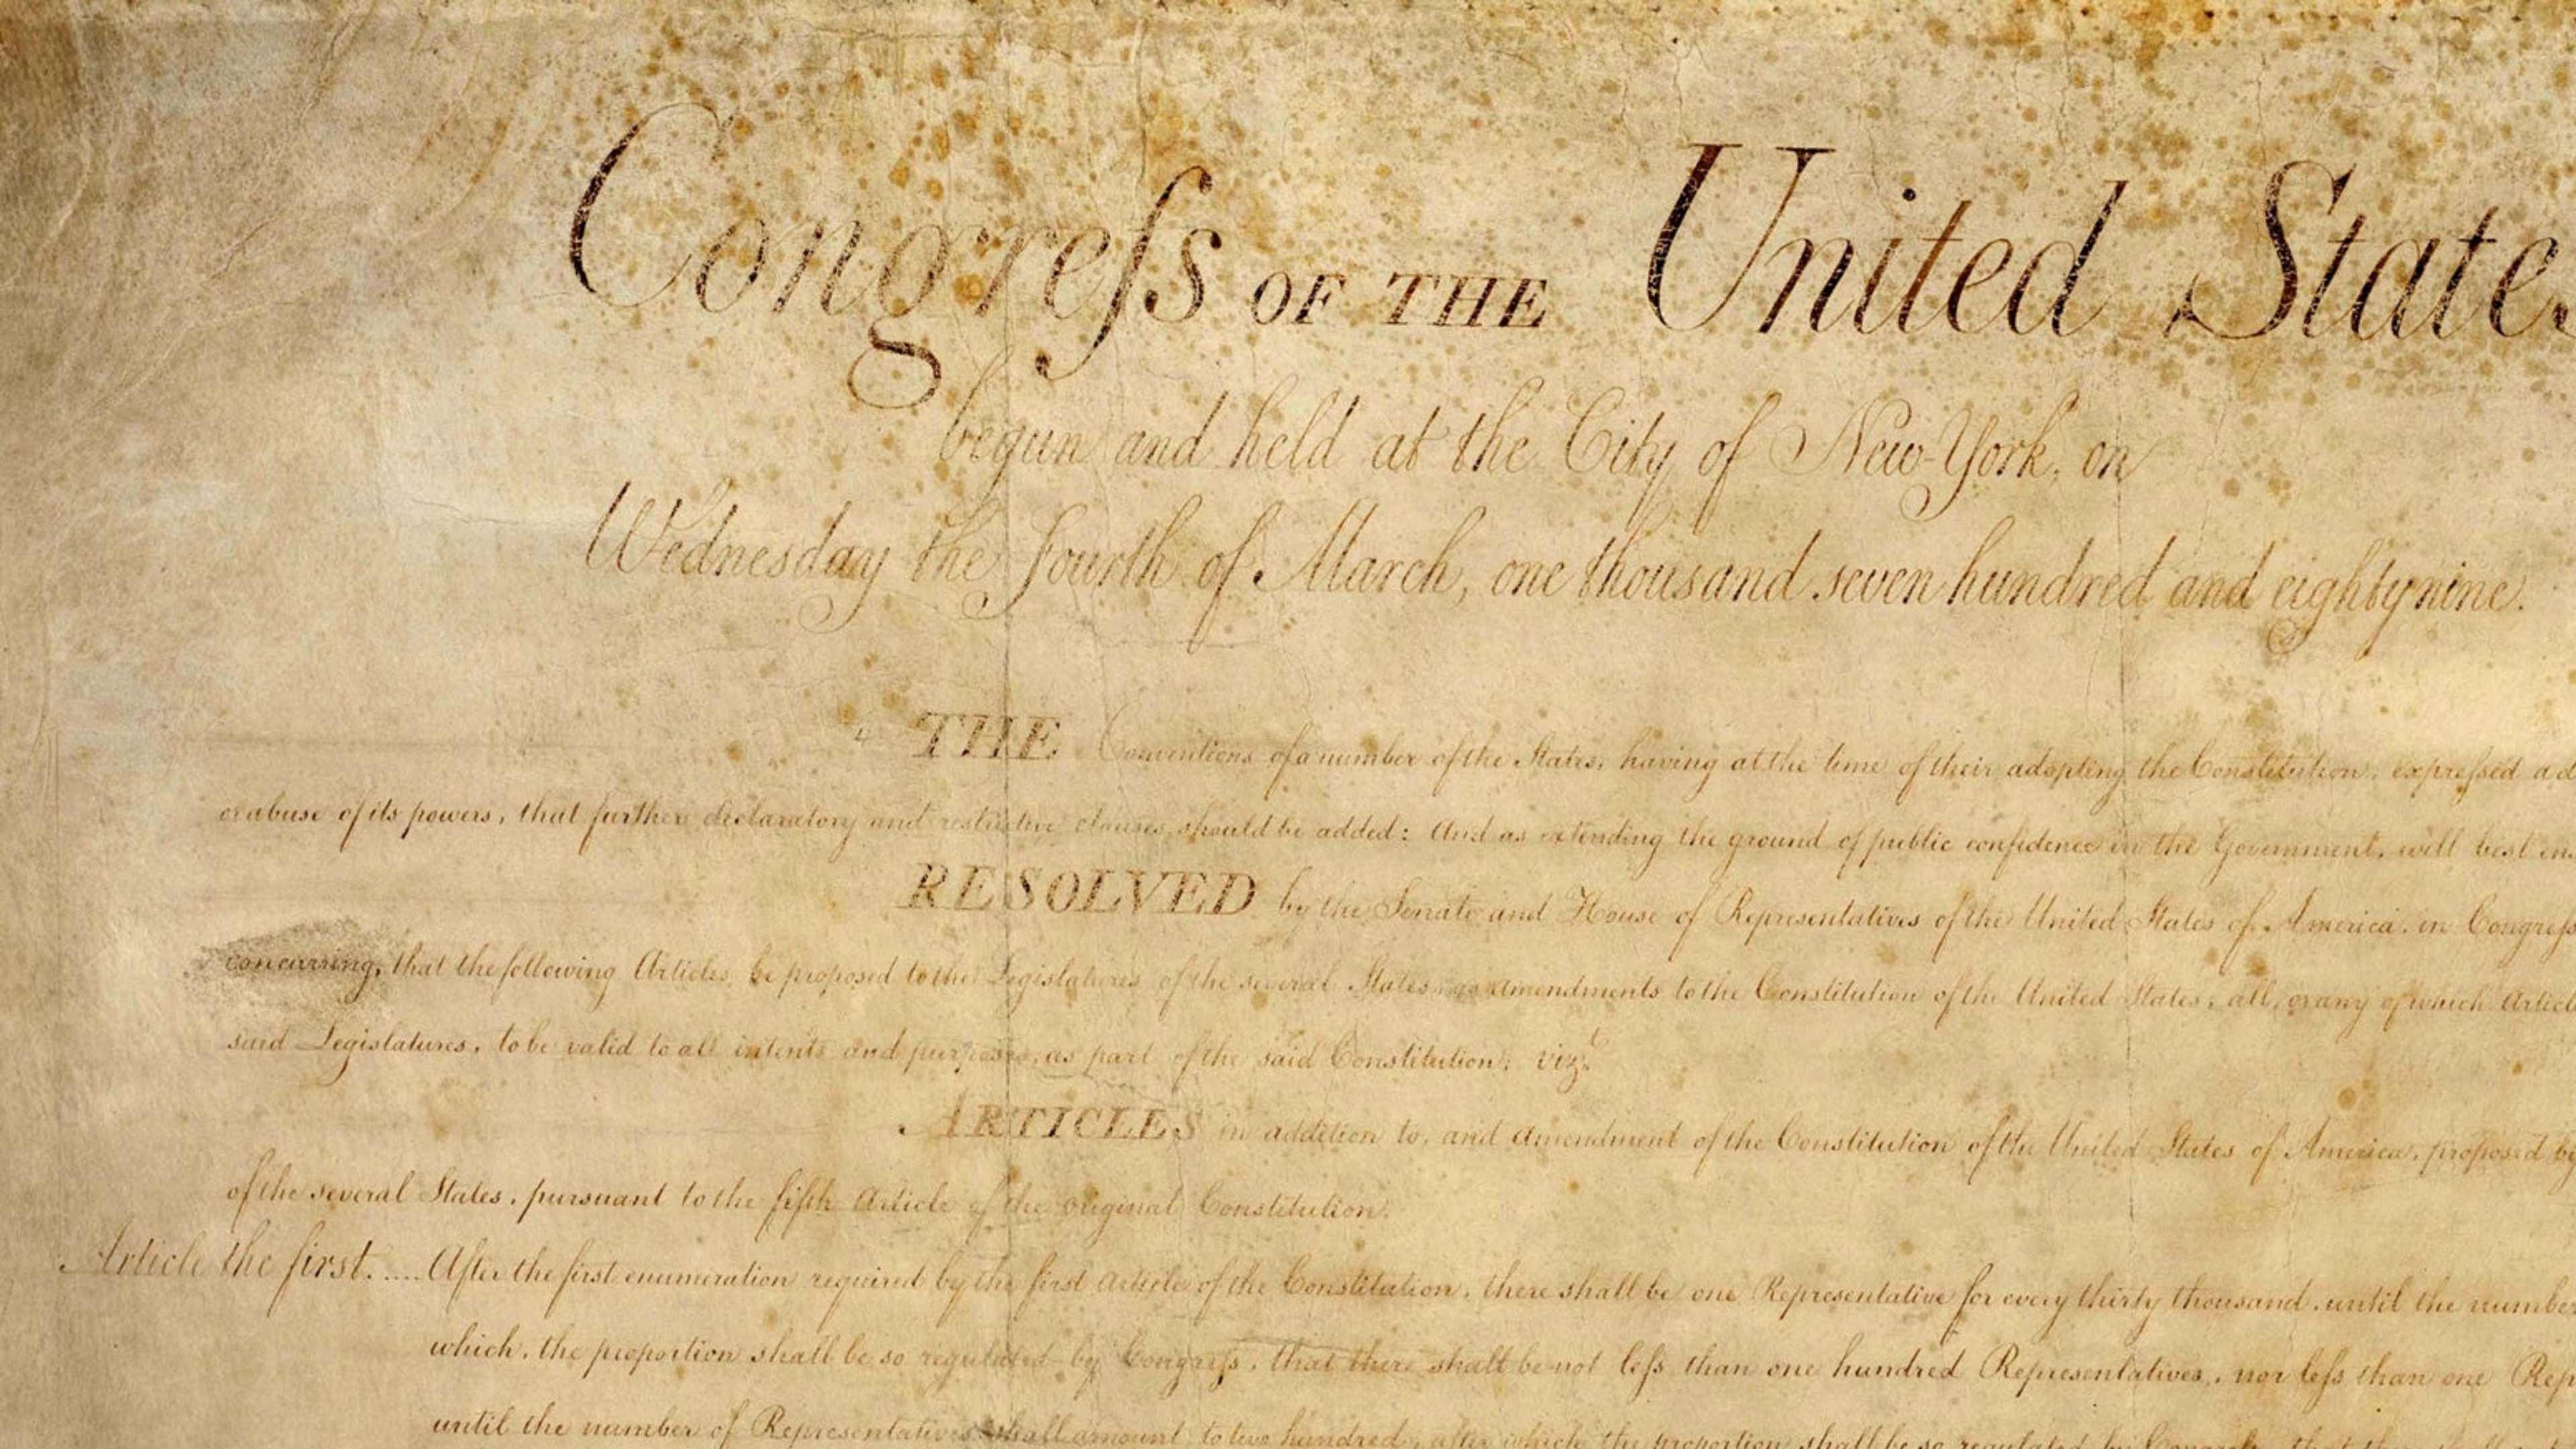 Congreſs OF THE United States
begun and held at the City of New-York, on
Wednesday the fourth of March, one thousand seven hundred and eighty nine.
THE Conventions of a number of the States, having at the time of their adopting the Constitution, expreſsed a d
or abuse of its powers, that further declaratory and restrictive clauses should be added: And as extending the ground of public confidence in the Government, will best en
RESOLVED by the Senate and House of Representatives of the United States of America, in Congreſs
concurring, that the following Articles be proposed to the Legislatures of the several States, as amendments to the Constitution of the United States, all, or any of which Artic
said Legislatures, to be valid to all intents and purposes, as part of the said Constitution; vizt.
ARTICLES in addition to, and amendment of the Constitution of the United States of America, proposed by
of the several States, pursuant to the fifth Article of the original Constitution.
Article the first. .... After the first enumeration required by the first Article of the Constitution, there shall be one Representative for every thirty thousand, until the number
which, the proportion shall be so regulated by Congreſs, that there shall be not leſs than one hundred Representatives, nor leſs than one Rep
until the number of Representatives shall amount to two hundred, after which the proportion shall be so regulated by Congreſs, that th